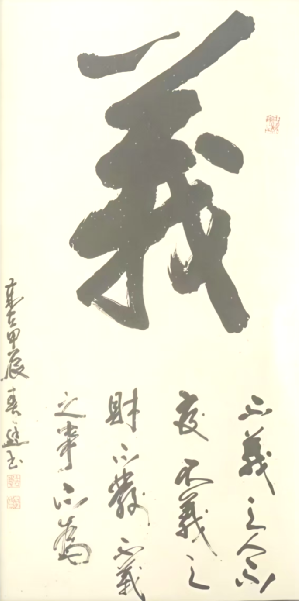 義
不義之人不
不義之
財不發不義
之事不為
甲辰